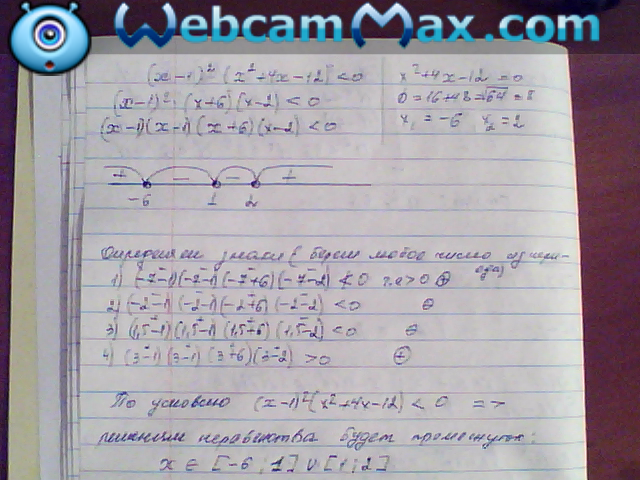 WebcamMax.com
(x-1)² (x²+4x-12) < 0
x²+4x-12=0
(x-1)² · (x+6)(x-2) < 0
D=16+48=√64=8
(x-1)(x-1)(x+6)(x-2) < 0
x₁=-6 x₂=2
+ - - +
-6 1 2
Определяем знаки (берем любое число из
1) (-7-1)(-7-1)(-7+6)(-7-2) < 0 т.е >0 ⊕
2) (-2-1)(-2-1)(-2+6)(-2-2) < 0 ⊖
3) (1,5-1)(1,5-1)(1,5+6)(1,5-2) < 0 ⊖
4) (3-1)(3-1)(3+6)(3-2) > 0 ⊕
По условию (x-1)²(x²+4x-12) < 0 =>
решением неравенства будет промежуток:
x ∈ [-6; 1] ∪ [1; 2]